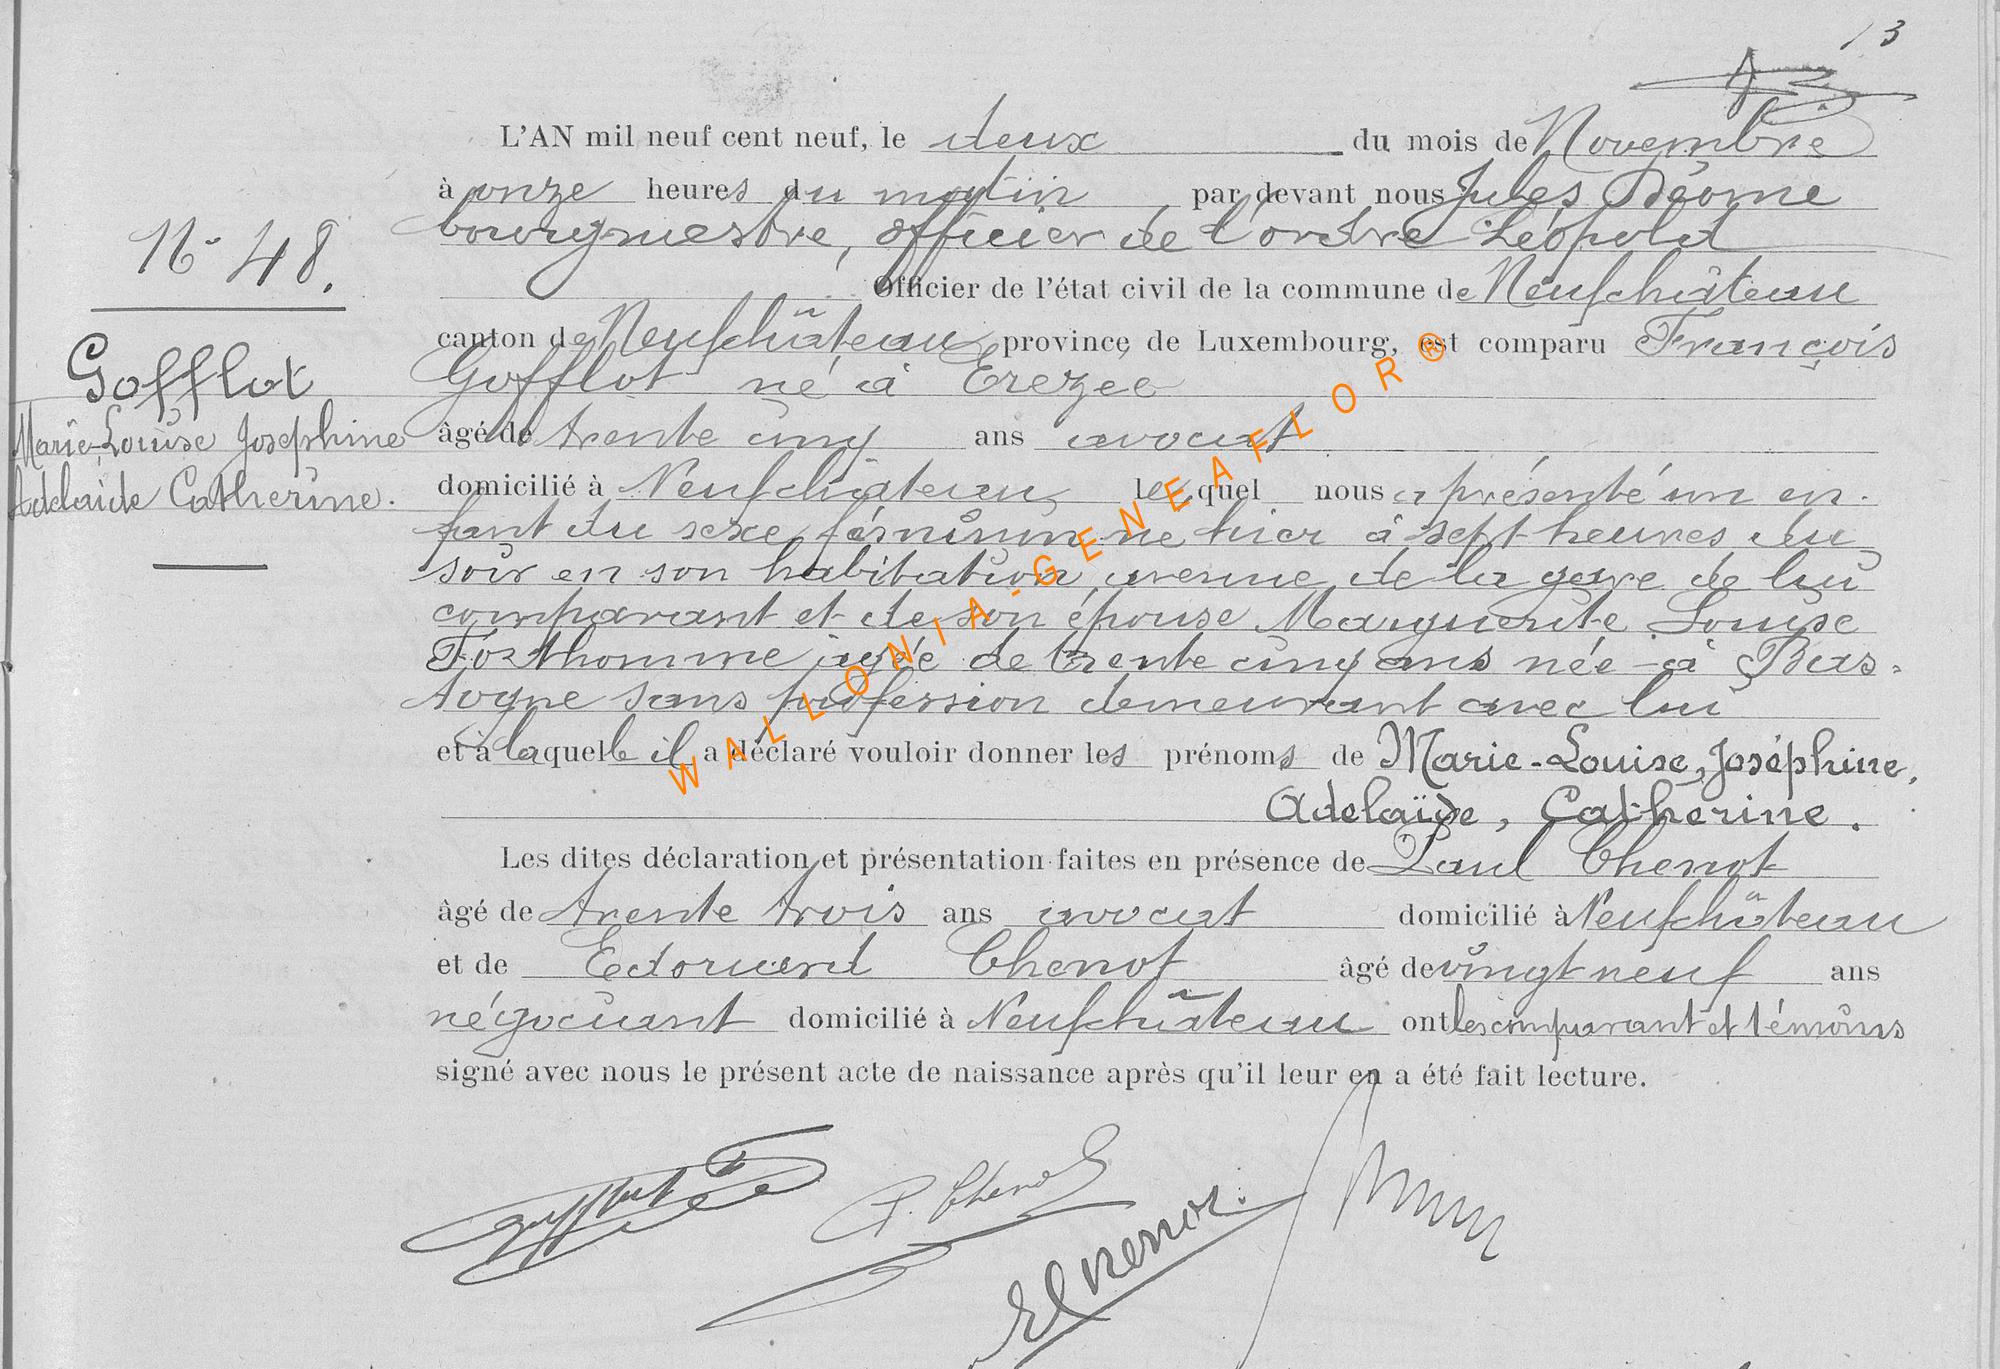 13
L'AN mil neuf cent neuf, le deux du mois de Novembre
à onze heures du matin par devant nous Jules Déome
bourgmestre, officier de l'ordre Léopold
Officier de l'état civil de la commune de Neufchâteau
canton de Neufchâteau province de Luxembourg, est comparu François
Gofflot né à Erezee
âgé de trente cinq ans avocat
domicilié à Neufchâteau lequel nous a présenté un en-
fant du sexe féminin né hier à sept heures du
soir en son habitation, avenue de la gare de lui
comparant et de son épouse Marguerite Louise
Forthomme agée de trente cinq ans née à Bas-
togne sans profession demeurant avec lui
et à laquelle il a déclaré vouloir donner les prénoms de Marie-Louise, Joséphine,
Adelaïde, Catherine.
Les dites déclaration et présentation faites en présence de Paul Chenot
âgé de trente trois ans avocat domicilié à Neufchâteau
et de Edouard Chenot âgé de vingt neuf ans
négociant domicilié à Neufchâteau ont les comparant et témoins
signé avec nous le présent acte de naissance après qu'il leur en a été fait lecture.
N° 48.
Gofflot
Marie-Louise Josephine
Adelaide Catherine.
Gofflot
P. Chenot
E Chenot
WALLONIA-GENEAFLOR®